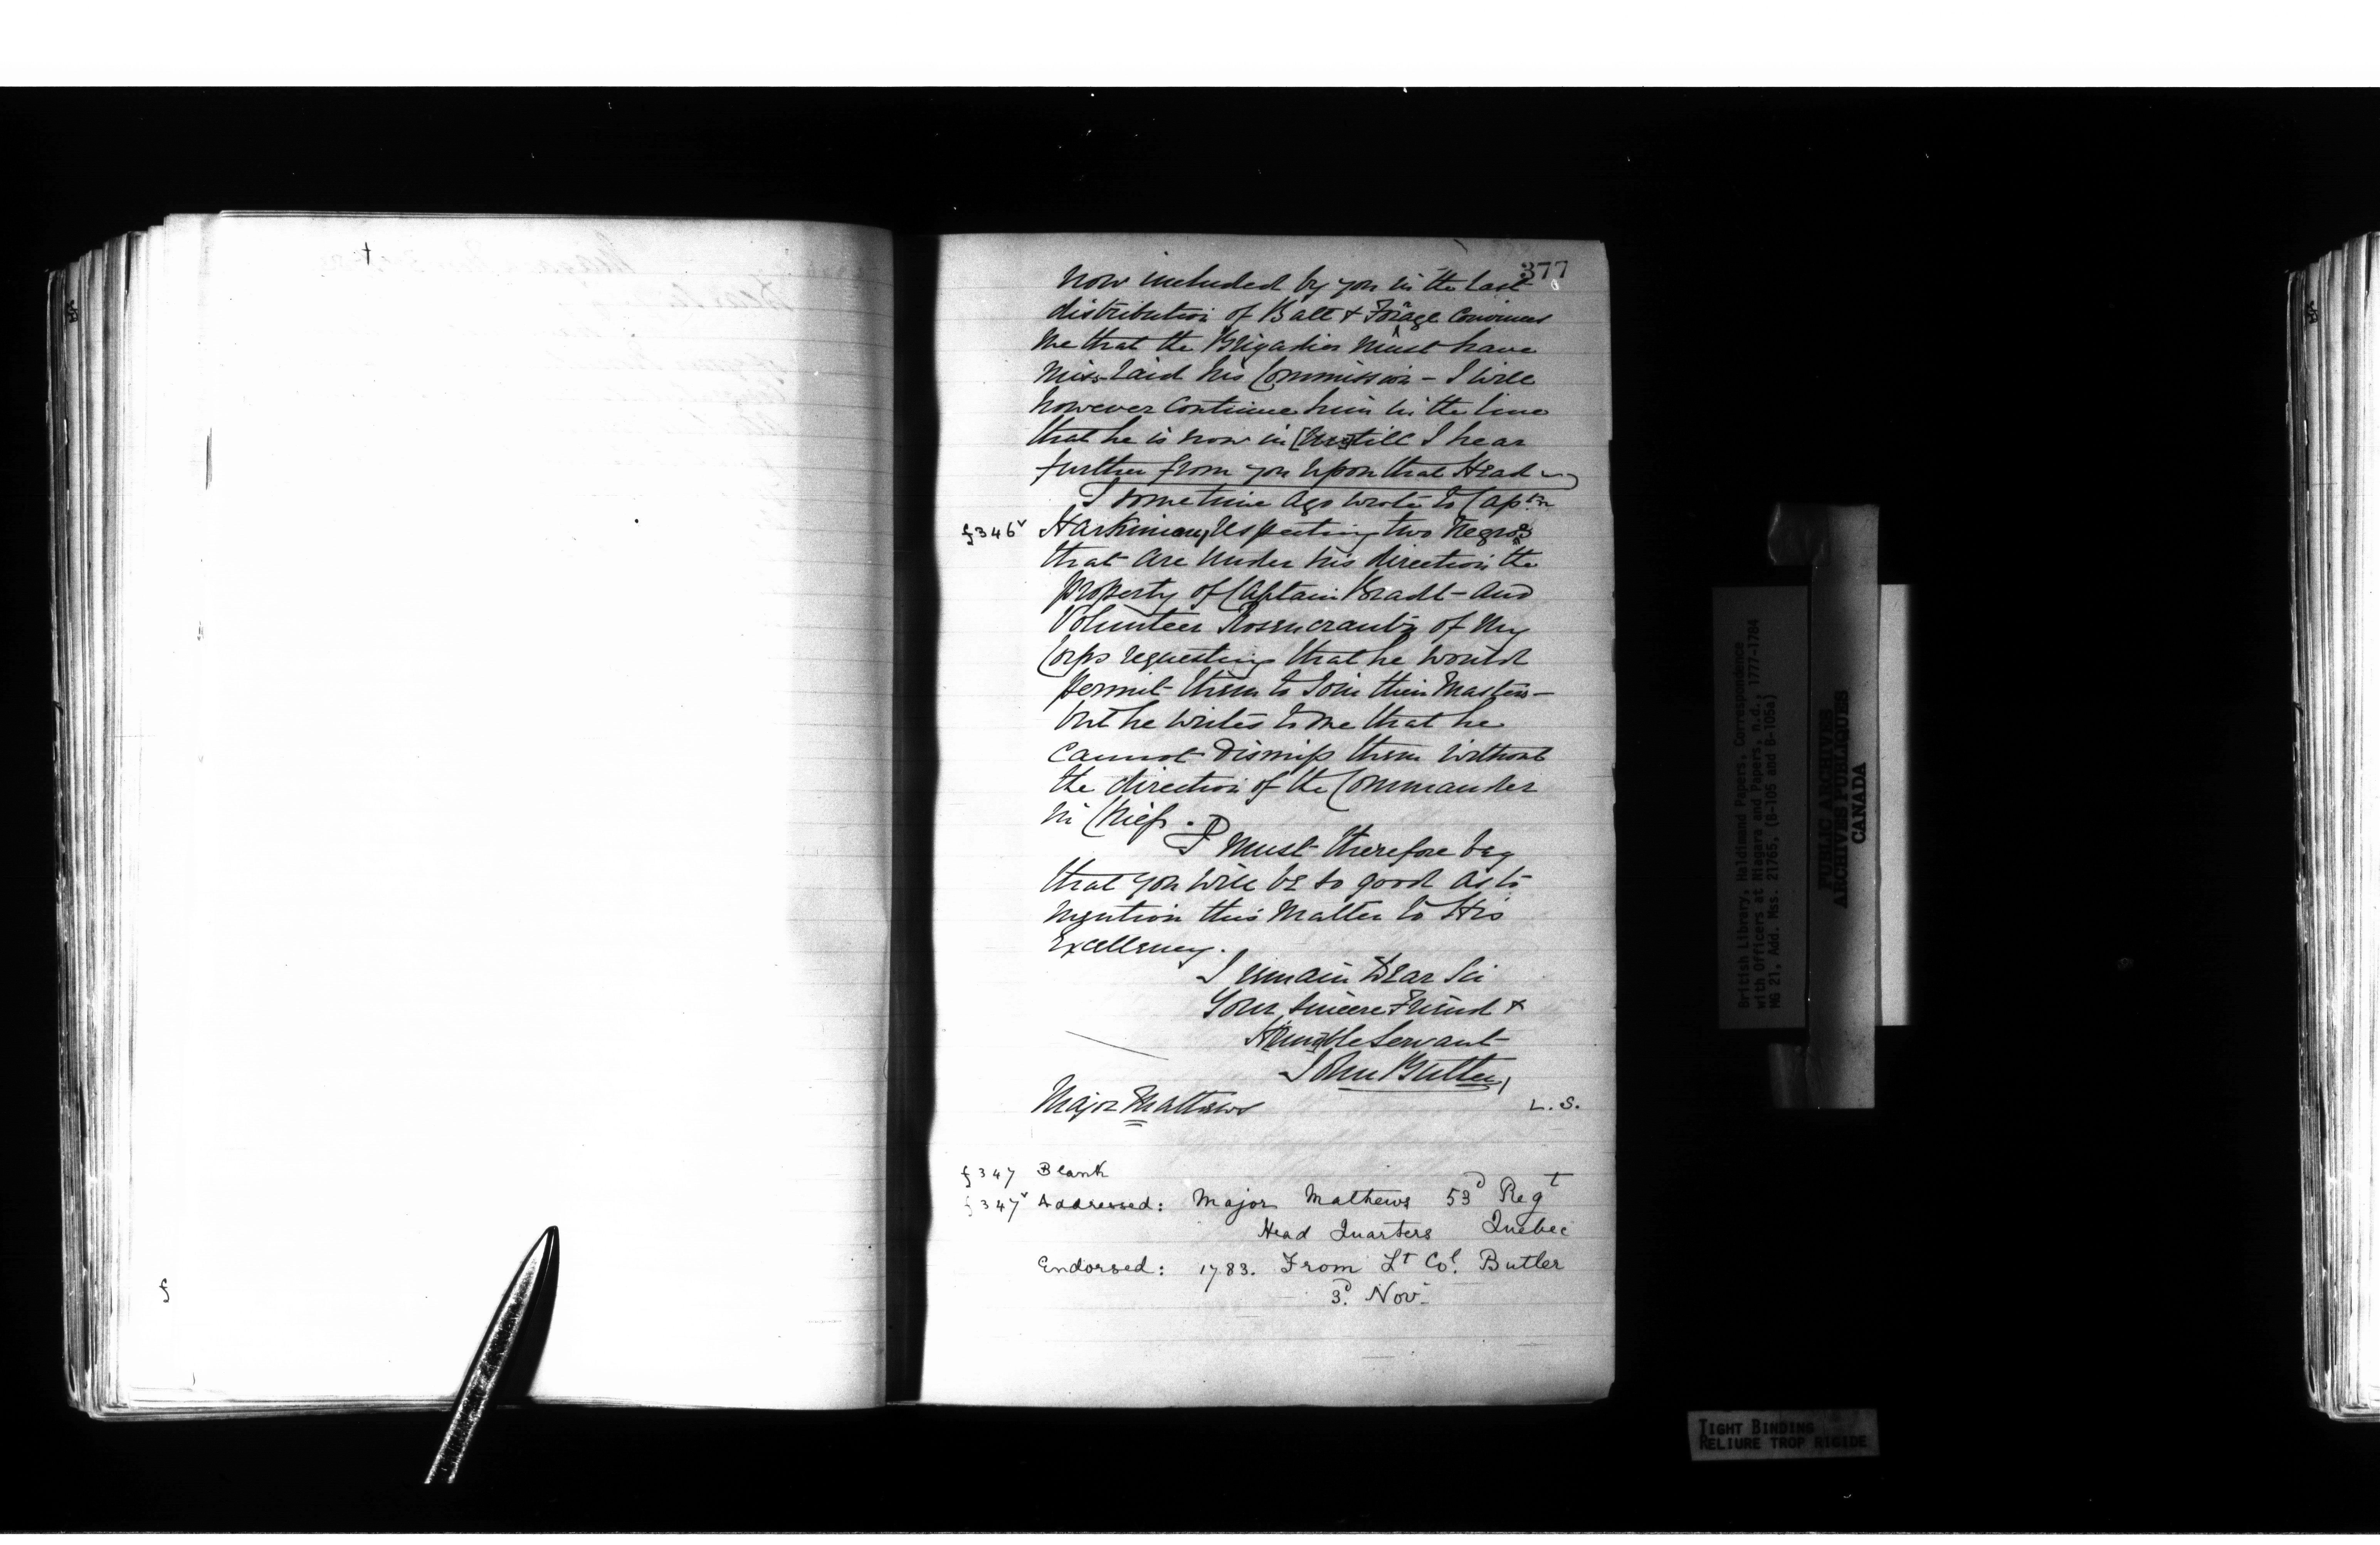 377
now included by you in the last
distribution of Batt & Forage Convinces
me that the Brigadier must have
miss-laid his Commission - I will
however Continue him in the line
that he is now in [un]till I hear
further from you upon that Head
I some time ago wrote to Captn
f346v Harkimen, respecting two Negros
that are under his direction the
property of Captain Bradt - and
Volunteer Rosencrantz of my
Corps requesting that he would
permit them to Join their Masters -
but he writes to me that he
cannot Dismiss them without
the direction of the Commander
in Chief.
I must therefore beg
that you will be so good as to
mention this Matter to His
Excellency.
I remain Dear Sir
Your Sincere Friend &
Humble Servant
John Butler,
Major Mathews L.S.
f347 Blank
f347v Addressed: Major Mathews 53d Regt
Head Quarters Quebec
Endorsed: 1783. From Lt Col. Butler
3d. Nov.
British Library, Haldimand Papers, Correspondence
with Officers at Niagara and Papers, n.d., 1777-1784
MG 21, Add. Mss. 21765, (B-105 and B-105a)
PUBLIC ARCHIVES
ARCHIVES PUBLIQUES
CANADA
TIGHT BINDING
RELIURE TROP RIGIDE